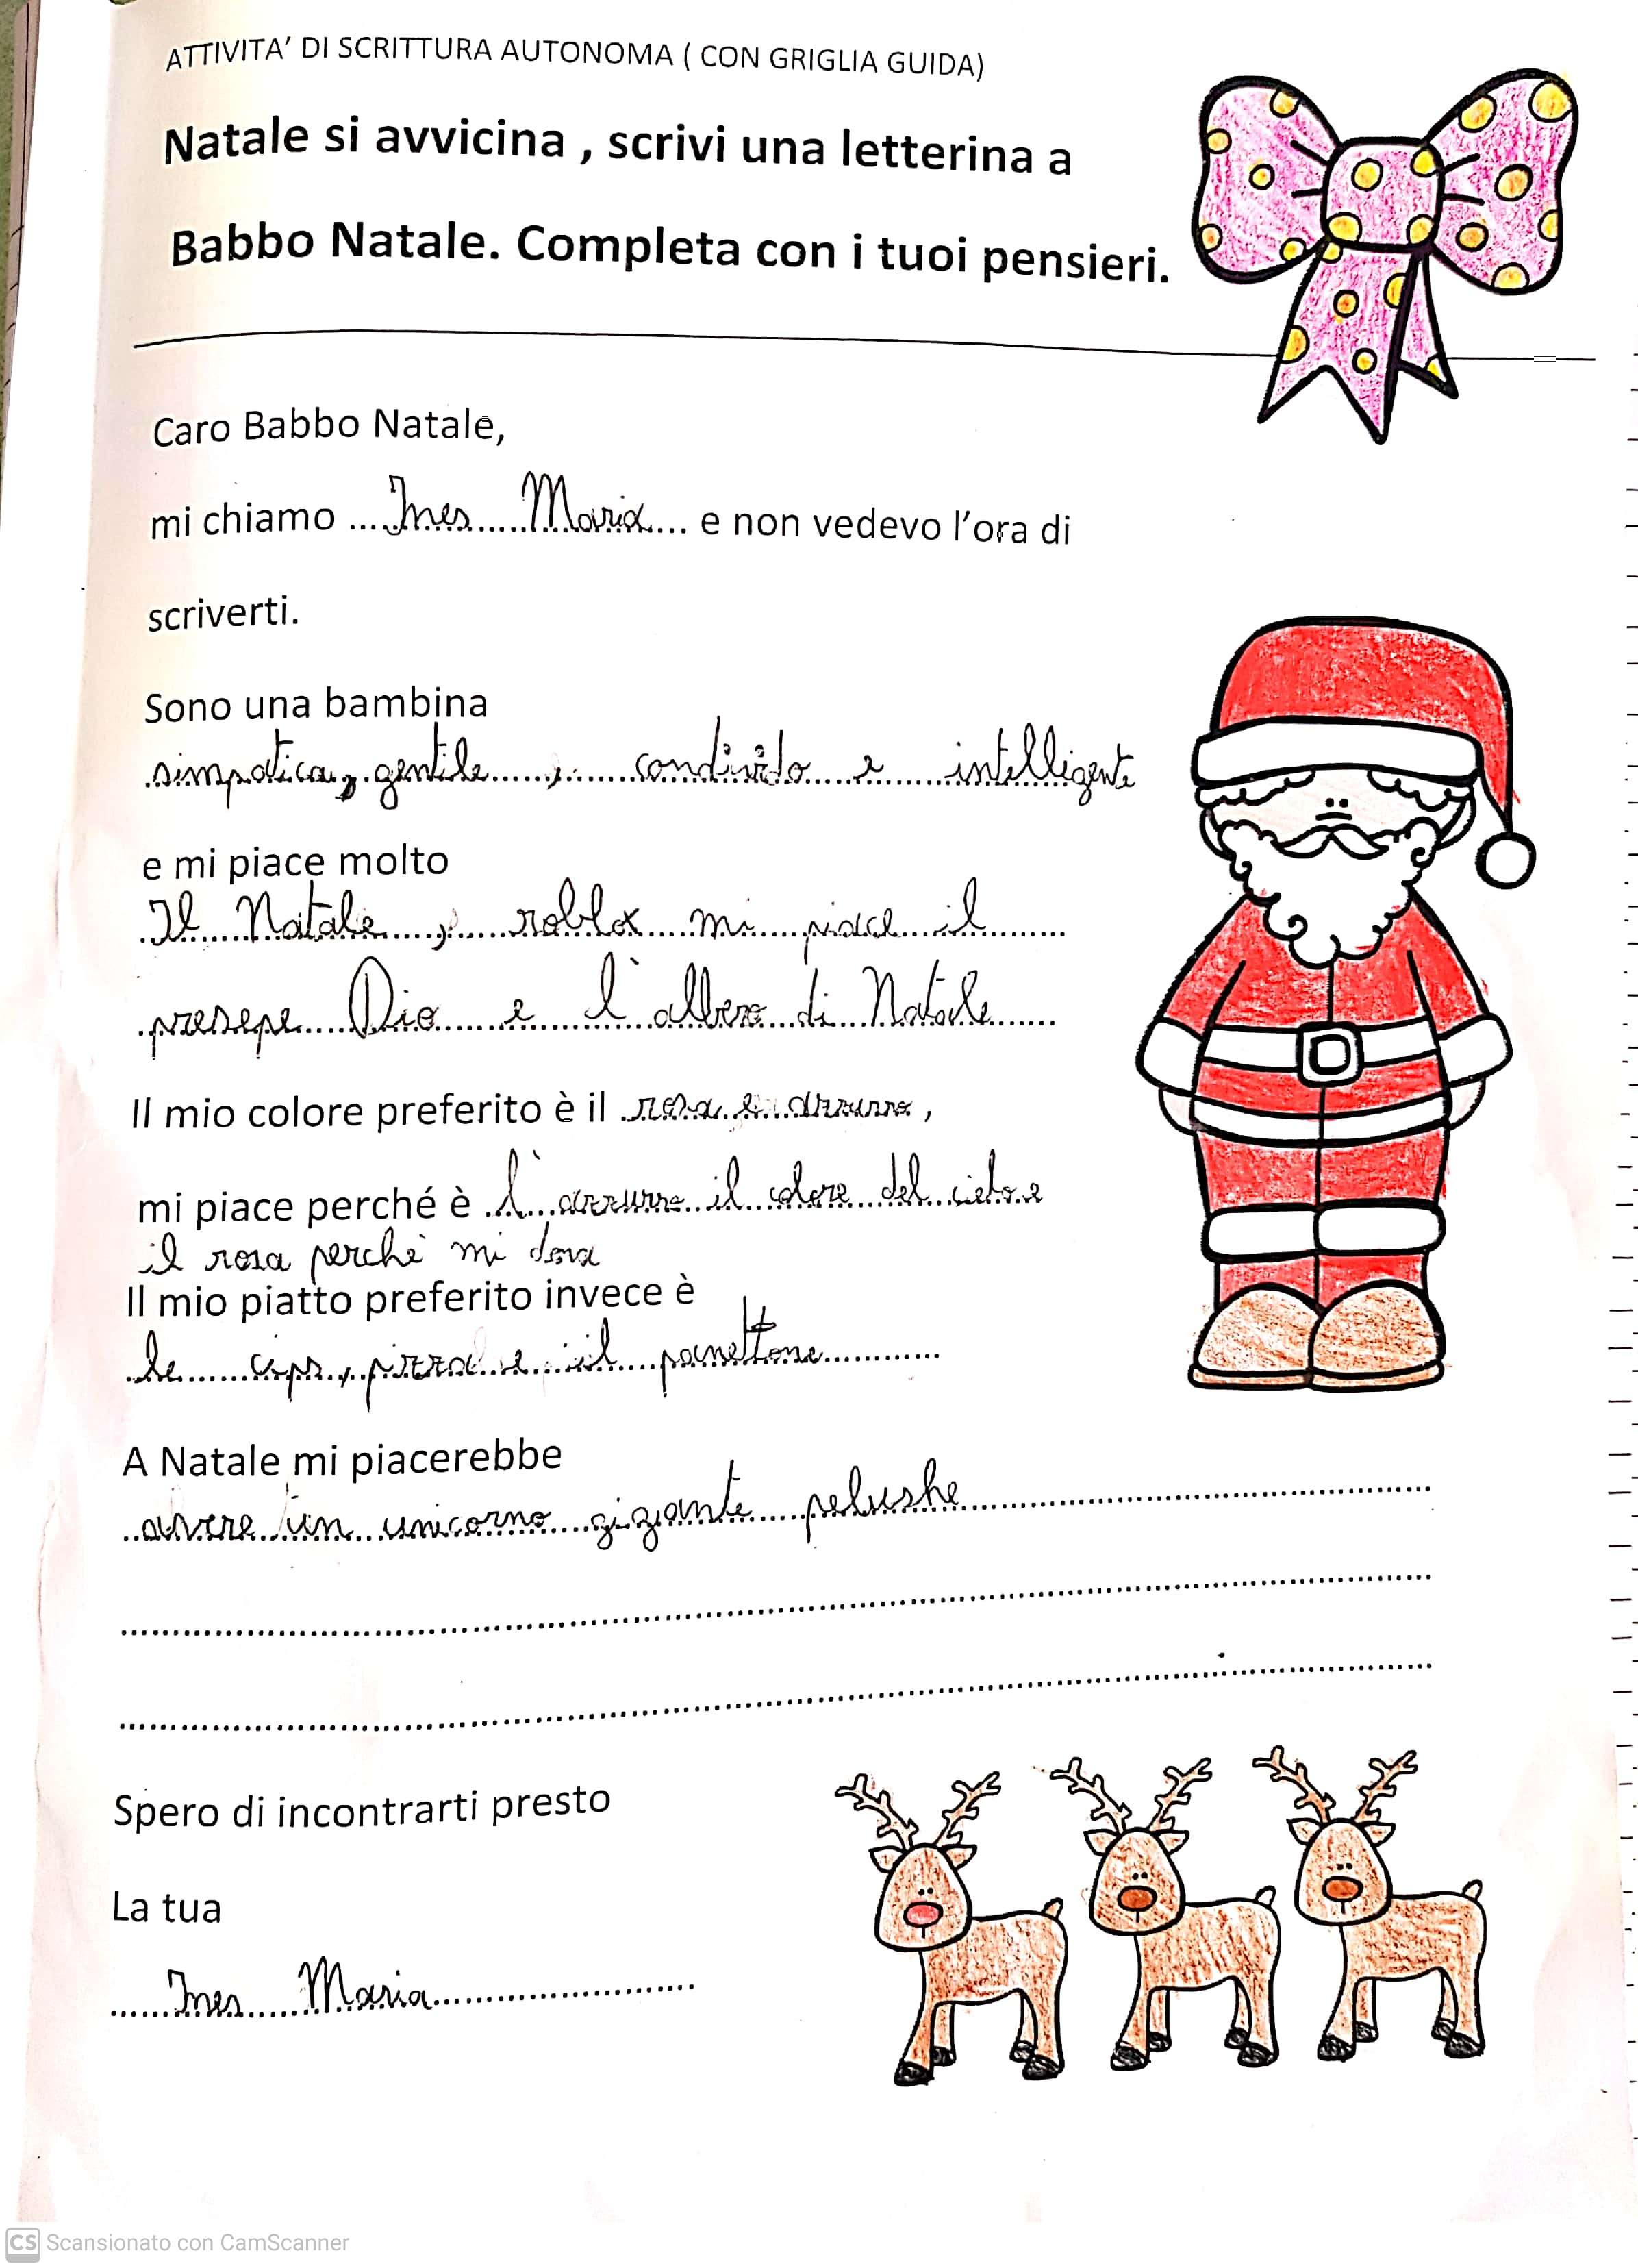 ATTIVITA' DI SCRITTURA AUTONOMA ( CON GRIGLIA GUIDA)
Natale si avvicina , scrivi una letterina a
Babbo Natale. Completa con i tuoi pensieri.
Caro Babbo Natale,
mi chiamo ... Ines Maria ... e non vedevo l'ora di
scriverti.
Sono una bambina
simpatica, gentile , condivido e intelligente
e mi piace molto
Il Natale , roblox mi piace il
presepe Dio e l'albero di Natale
Il mio colore preferito è il rosa e azzurro ,
mi piace perché è l'azzurro il colore del cielo e
il rosa perchè mi dona
Il mio piatto preferito invece è
le cips, pizza e il panettone
A Natale mi piacerebbe
avere un unicorno gigante pelushe
Spero di incontrarti presto
La tua
Ines Maria
CS Scansionato con CamScanner